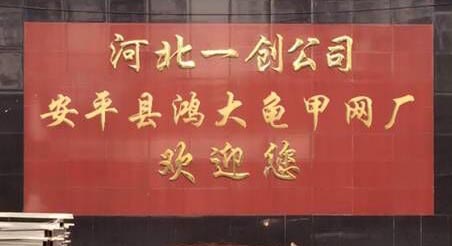 河北一创公司
安平县鸿大龟甲网厂
欢迎您